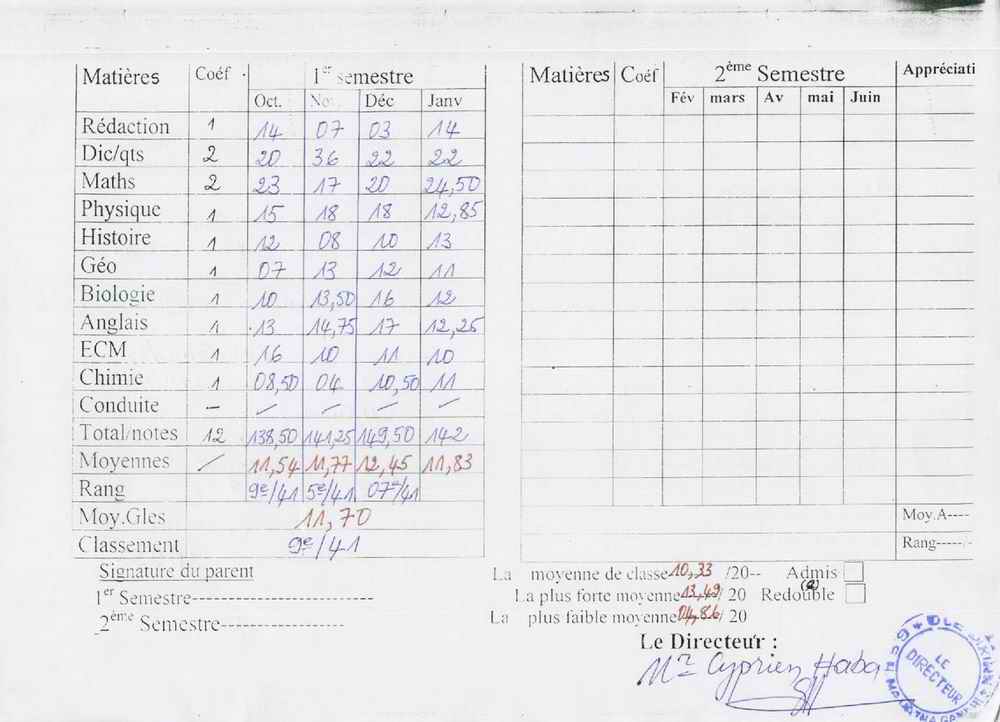 Matières Coéf 1er semestre
Oct. Nov. Déc Janv
Rédaction 1 14 07 03 14
Dic/qts 2 20 36 22 22
Maths 2 23 17 20 24,50
Physique 1 15 18 18 12,85
Histoire 1 12 08 10 13
Géo 1 07 13 12 11
Biologie 1 10 13,50 16 12
Anglais 1 13 14,75 17 12,25
ECM 1 16 10 11 10
Chimie 1 08,50 04 10,50 11
Conduite — / / / /
Total/notes 12 138,50 141,25 149,50 142
Moyennes / 11,54 11,77 12,45 11,83
Rang 9e/41 5e/41 07e/41
Moy.Gles 11,70
Classement 9e/41
Signature du parent
1er Semestre--------------------
2ème Semestre---------------
Matières Coéf 2ème Semestre Appréciati
Fév mars Av mai Juin
Moy.A----
Rang-----/-
La moyenne de classe 10,33 /20-- Admis
La plus forte moyenne 13,49/ 20 Redouble
La plus faible moyenne 04,86/ 20
Le Directeur :
Mr Cyprien Haba
LE
DIRECTEUR